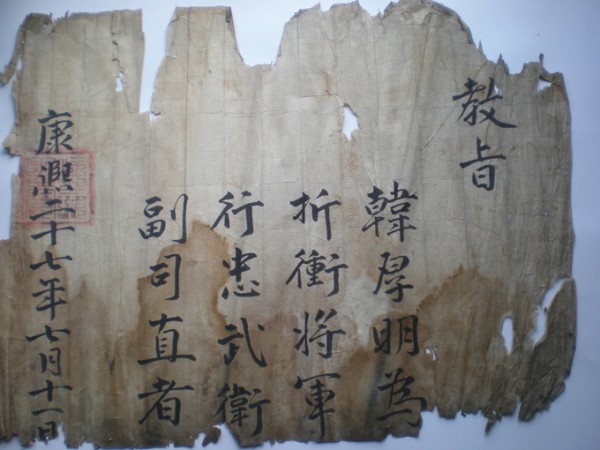 教旨
韓厚明為
折衝將軍
行忠武衛
副司直者
康熙二十七年七月十一日